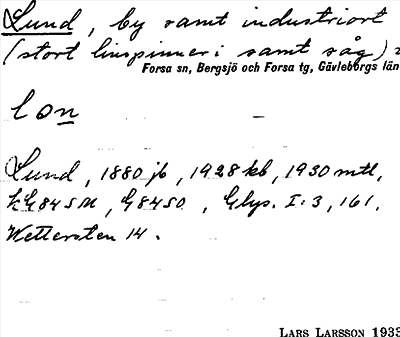 Lund, by samt industriort
(stort linspinneri samt såg)
Forsa sn, Bergsjö och Forsa tg, Gävleborgs län
lon –
Lund, 1880 jb, 1928 kb, 1930 mtl,
G84SO, Glys. I:3, 161,
Wettersten 14.
LARS LARSSON 1933